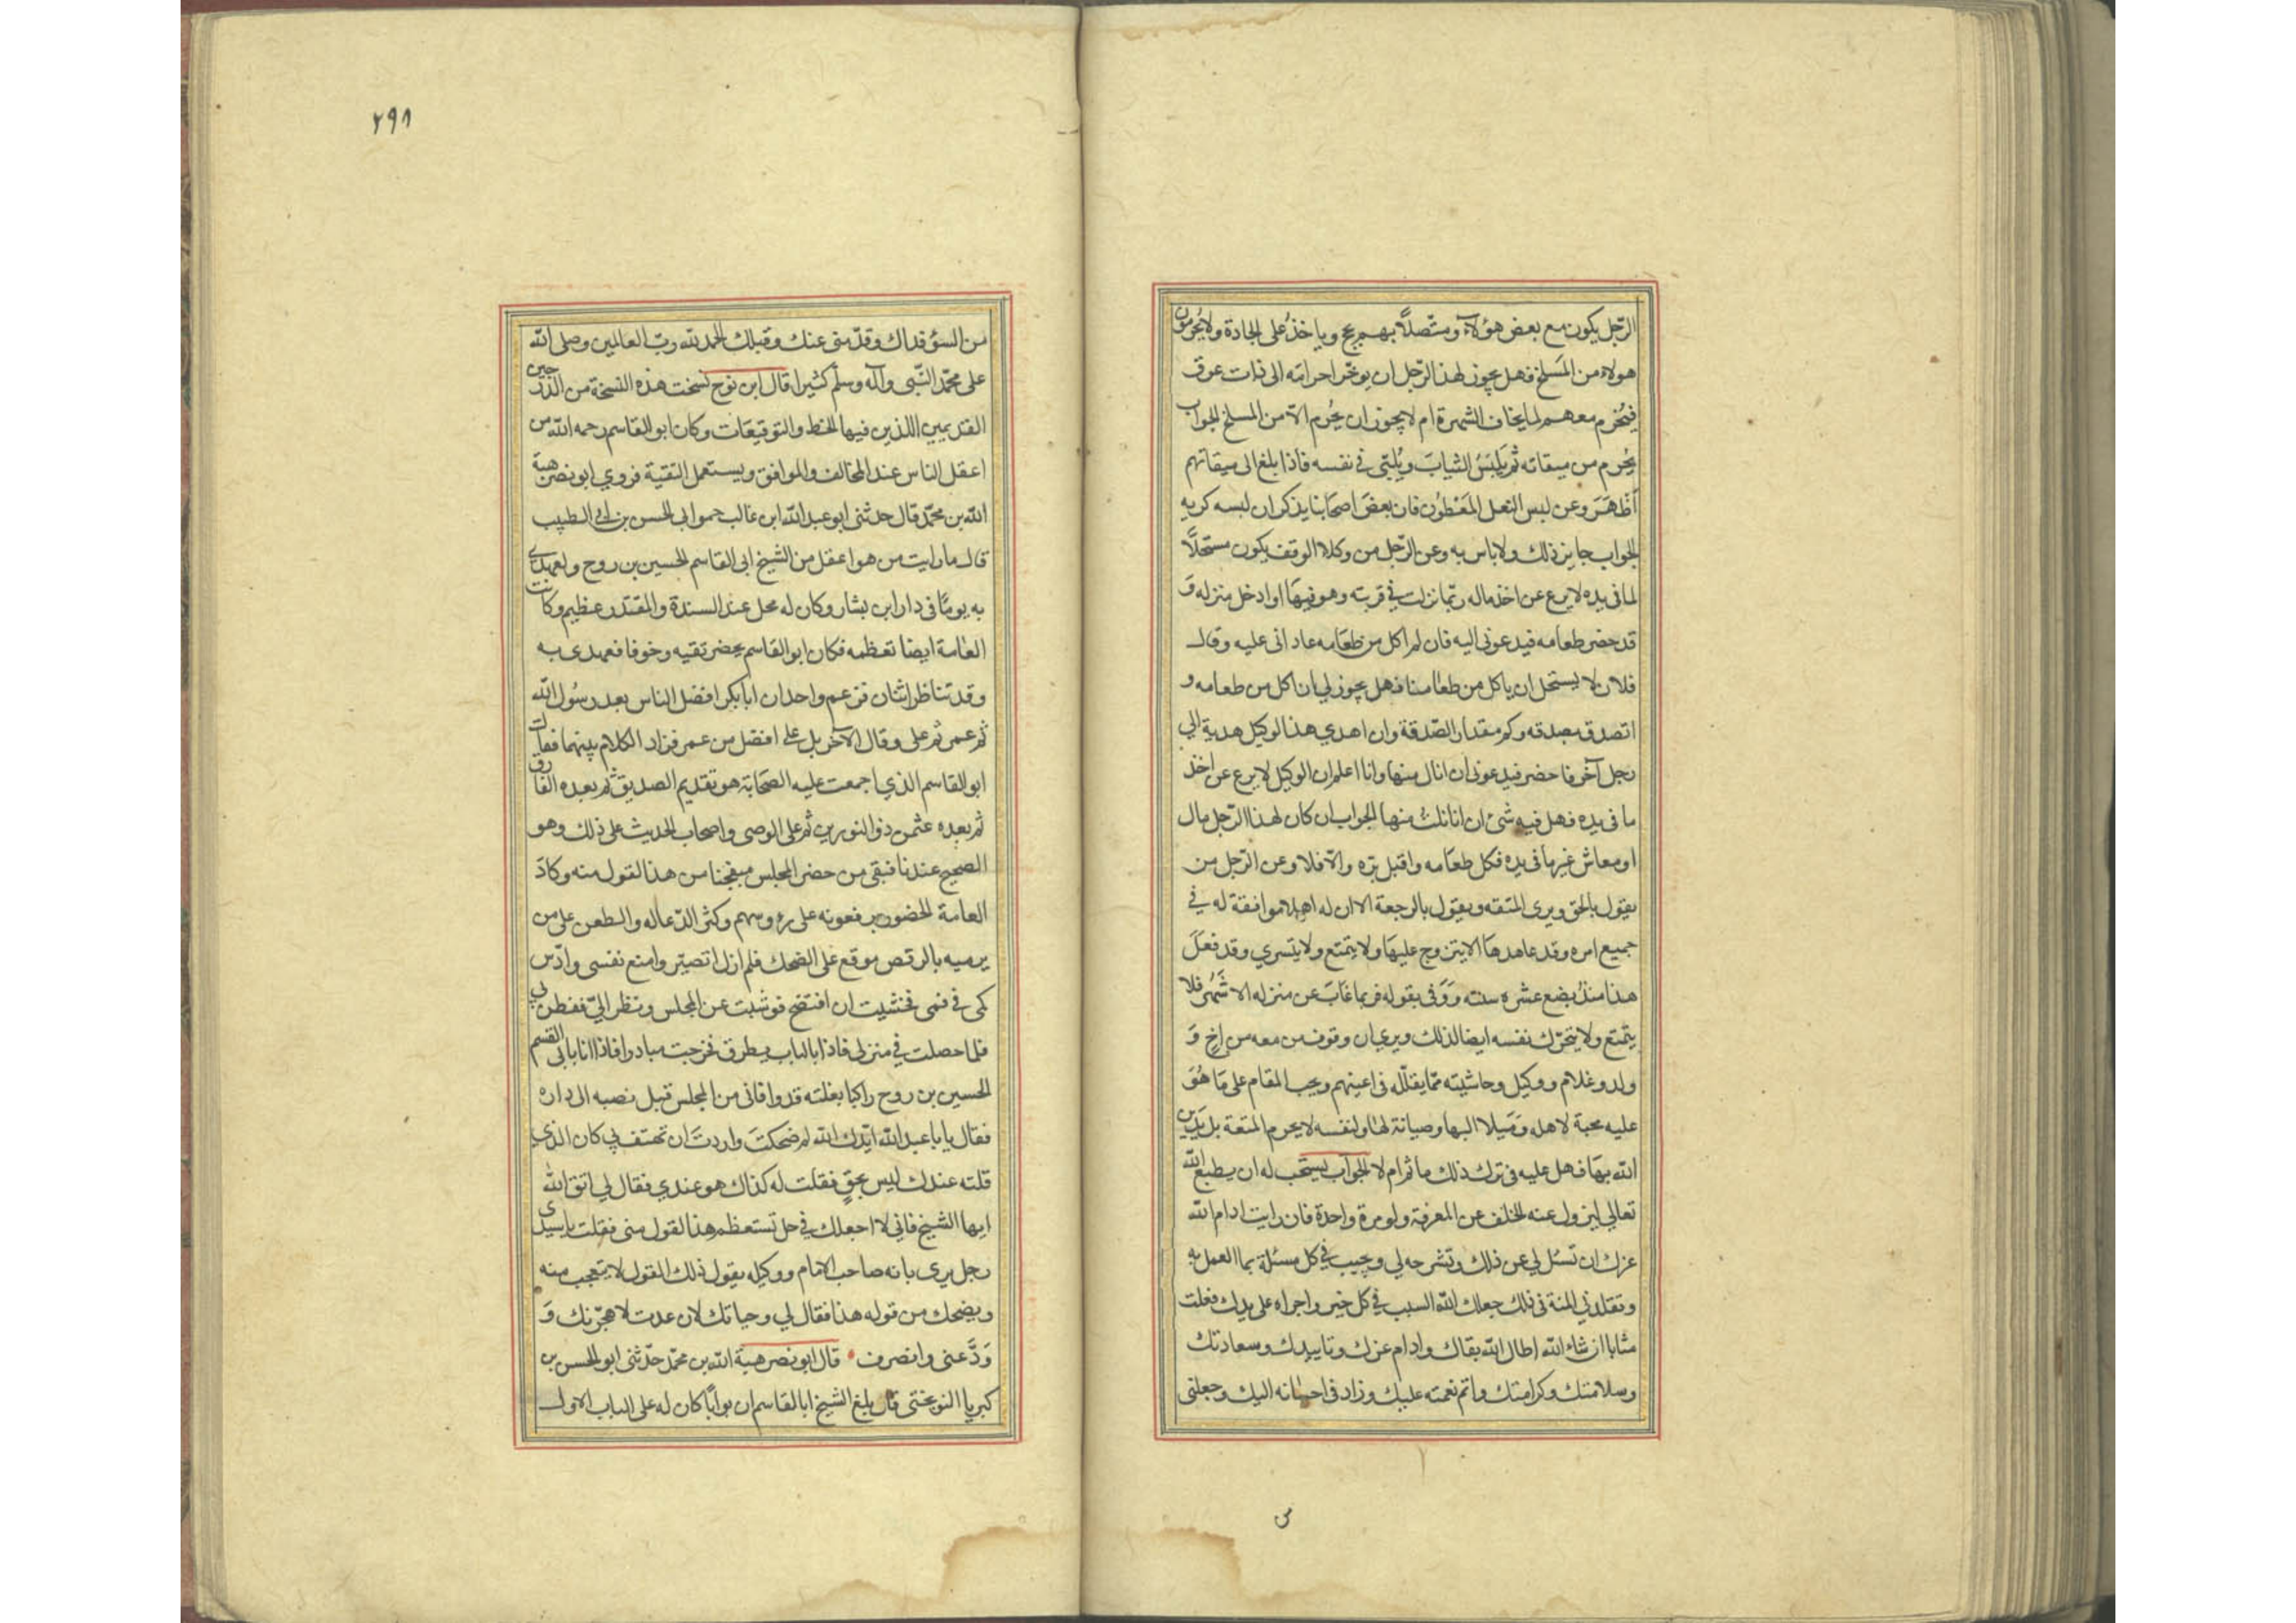 الرّجل يكون مع بعض هؤلاء ومتّصلاً بهم يحج وياخذ على الجادة ولا يُحرمون
هولاء من المَسلخ فهل يجوز لهذا الرّجل ان يوخّر احرامه الى ذات عرق
فيُحرم معهم لما يخاف الشهرة ام لا يجوز ان يُحرم الّا من المسلخ الجواب
يُحرم من ميقاته ثم يَلبَسُ الثيابَ ويُلبّي في نفسه فاذا بلغ الى ميقاتهم
أَظْهَرَ وعن لبس النعل المَعْطُون فان بعضَ اصحَابنا يذكر ان لبسه كريه
الجواب جايز ذلك ولا باس به وعن الرّجل من وكلاء الوقف يكون مستحلاًّ
لما في يده لا يرع عن اخذ ماله ربّما نزلت في قريته وهو فيهَا او ادخل منزله وَ
قد حضر طعامه فيدعوني اليه فان لم اكل من طعَامه عاداني عليه وقال
فلان لا يستحل ان ياكل من طعامنا فهل يجوز لي ان اكل من طعامه و
اتصدق بصدقه وكم مقدار الصّدقة وان اهدي هذا الوكيل هدية الى
رجل آخر فاحضر فيدعوني ان انال منها وانا اعلم ان الوكيل لا يرع عن اخذ
ما في يده فهل فيه شئ ان انا نلتُ منها الجواب ان كان لهذا الرّجل مال
او معاش غير ما في يده فكل طعَامه واقبل برّه والّا فلا وعن الرّجل من
يقول بالحق ويرى المتعه ويقول بالرجعة الا ان له اهلا موافقة له في
جميع امره وقد عاهدهَا الا يتزوج عليهَا ولا يتمتع ولا يتسري وقد فعَلَ
هذا منذُ بضع عشره سنه وَوَفى بقوله فربما غَابَ عن منزله الاشَهُر فلا
يتمّتع ولا يتحرّك نفسه ايضا لذلك ويرى ان وقوف من معه من اخٍ وَ
ولد وغلام ووكيل وحاشيته ممّا يقلّله في اعينهم ويحب المقام على مَا هُوَ
عليه محبة لاهله وَمَيلا اليها وصيانة لها ولنفسه لا يحرم المتعة بل يَدين
الله بهَا فهل عليه في ترك ذلك ماثم ام لا الجواب يستحب له ان يطيع الله
تعالى ليزول عنه الحلف عن المعرفة ولو مرة واحدة فان رايت ادام الله
عزك ان تسئل لي عن ذلك وتشرحه لي وتجيب في كل مسئلة بما العمل به
وتقلدني المنة في ذلك جعلك الله السبب في كل خير واجراه على يدك فعلت
مثابا ان شاء الله اطال الله بقاك وادام عزك وتاييدك وسعادتك
وسلامتك وكرامتك واتم نعمته عليك وزاد في احسانه اليك وجعلني
س
٢٩٨
من السوء فداك وقدّمني عنك وقبلك الحمد لله ربّ العالمين وصلى الله
على محمّد النّبي وآله وسلّم كثيرا قال ابن نوح نسخت هذه النسخة من الدرجين
القديمين اللذين فيها الخط والتوقيعَات وكان ابو القاسم رحمه الله من
اعقل الناس عند المخالف والموافق ويستعمل التقية فروي ابو نصر هبة
الله بن محمّد قال حدثني ابو عبد الله ابن غالب حمو ابي الحسن بن ابي الطيب
قال ما رايت من هو اعقل من الشيخ ابي القاسم الحسين بن روح ولعهدي
به يومًا في دار ابن يشار وكان له محل عند السيدة والمقتدر عظيم وكانت
العامة ايضا تعظمه فكان ابو القاسم يحضر تقيه وخوفا فعهدي به
وقد تناظر اثنان فزعم واحد ان ابا بكر افضل الناس بعد رسُول الله
ثم عمر ثم على وقال الآخر بل على افضل من عمر فزاد الكلام بينهما فقال
ابو القاسم الذي اجمعت عليه الصحَابة هو تقديم الصديق ثم بعده الفاروق
ثم بعده عثمن ذو النورين ثم على الوصي واصحاب الحديث على ذلك وهو
الصحيح عندنا فبقي من حضر المجلس متعجبا من هذا القول منه وكادَ
العامة الحضور يرفعونه على رؤوسهم وكثر الدّعا له والطعن على من
يرميه بالرفض فوقع على الضحك فلم ازل اتصبّر وامنع نفسي وادّس
كمي في فمي فخشيت ان افتضح فوثبت عن المجلس ونظر اليّ ففطن لي
فلما حصلت في منزلي فاذا بالباب يطرق فخرجت مبادرا فاذا انا بابي القسم
الحسين بن روح راكبا بغلته قد وافاني من المجلس قبل مضيه الى داره
فقال يا با عبد الله ايّدك الله لم ضحكتَ واردتَ ان تهتف بي كان الذي
قلته عندك ليس بحقٍ فقلت له كذاك هو عندي فقال لي اتق الله
ايها الشيخ فاني لا اجعلك في حل تستعظم هذا القول مني فقلت يا سيدي
رجل يرى بانه صاحب الامام ووكيله يقول ذلك القول لا يتعجب منه
ويضحك من قوله هذا فقال لي وحياتك لان عدت لاهجّرنك وَ
وَدَّعني وانصرف قال ابو نصر هبة الله بن محمّد حدّثني ابو الحسن بن
كبريا النوبختي قال بلغ الشيخ ابا القاسم ان بوابًا كان له على الباب الاول